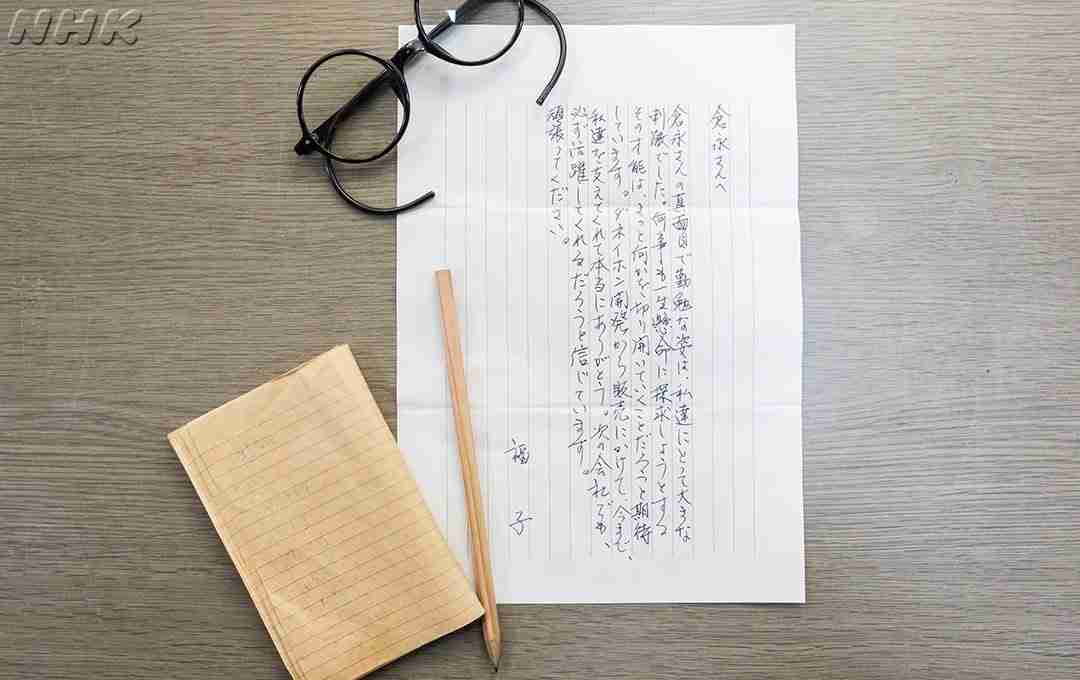 NHK
倉永さんへ
倉永さんの真面目で勤勉な姿は、私達にとって大きな
刺激でした。何事も一生懸命に探求しようとする
その才能は、きっと何かを切り開いていくことだろうと期待
しています。ダネイホン開発から販売にかけて、今まで、
私達を支えてくれて本当にありがとう。次の会社でも、
必ず活躍してくれるだろうと信じています。
頑張ってください。
福子